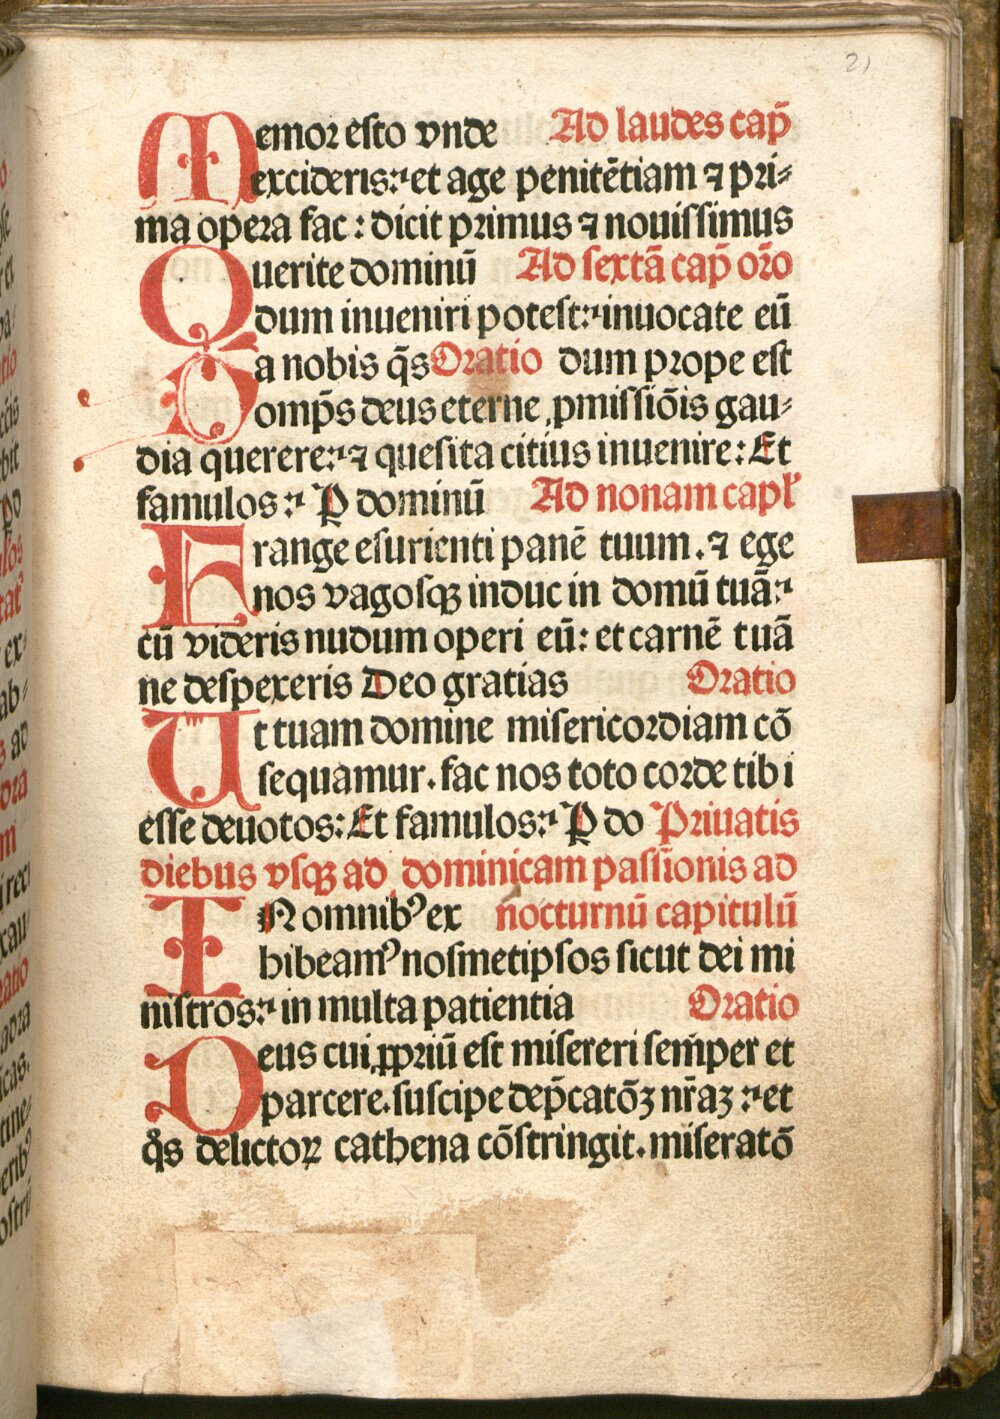 21
Memor esto vnde Ad laudes cap̄
excideris:᷒ et age penitētiam ⁊ pri⸗
ma opera fac : dicit primus ⁊ nouissimus
Querite dominū Ad sextā cap̄ or̄o
dum inueniri potest:᷒ inuocate eū
a nobis q̄s Oratio dum prope est
Domp̄s deus eterne ꝓmissiōis gau⸗
dia querere:᷒ ⁊ quesita citius inuenire: Et
famulos:᷒ P dominū Ad nonam capl̄
Frange esurienti panē tuum. ⁊ ege
nos vagosqꝫ induc in domū tuā:᷒
cū videris nudum operi eū: et carnē tuā
ne despexeris Deo gratias Oratio
Ut tuam domine misericordiam cō
sequamur. fac nos toto corde tibi
esse deuotos: Et famulos:᷒ P do Priuatis
diebus vsqꝫ ad dominicam passionis ad
IN omnibꝰ ex nocturnū capitulū
hibeamꝰ nosmetipsos sicut dei mi
nistros:᷒ in multa patientia Oratio
Deus cui ꝓpriū est misereri semp̄er et
parcere. suscipe dep̄catōꝫ nr̄aꝫ:᷒ et
qͦs delictoꝝ cathena cōstringit. miseratō